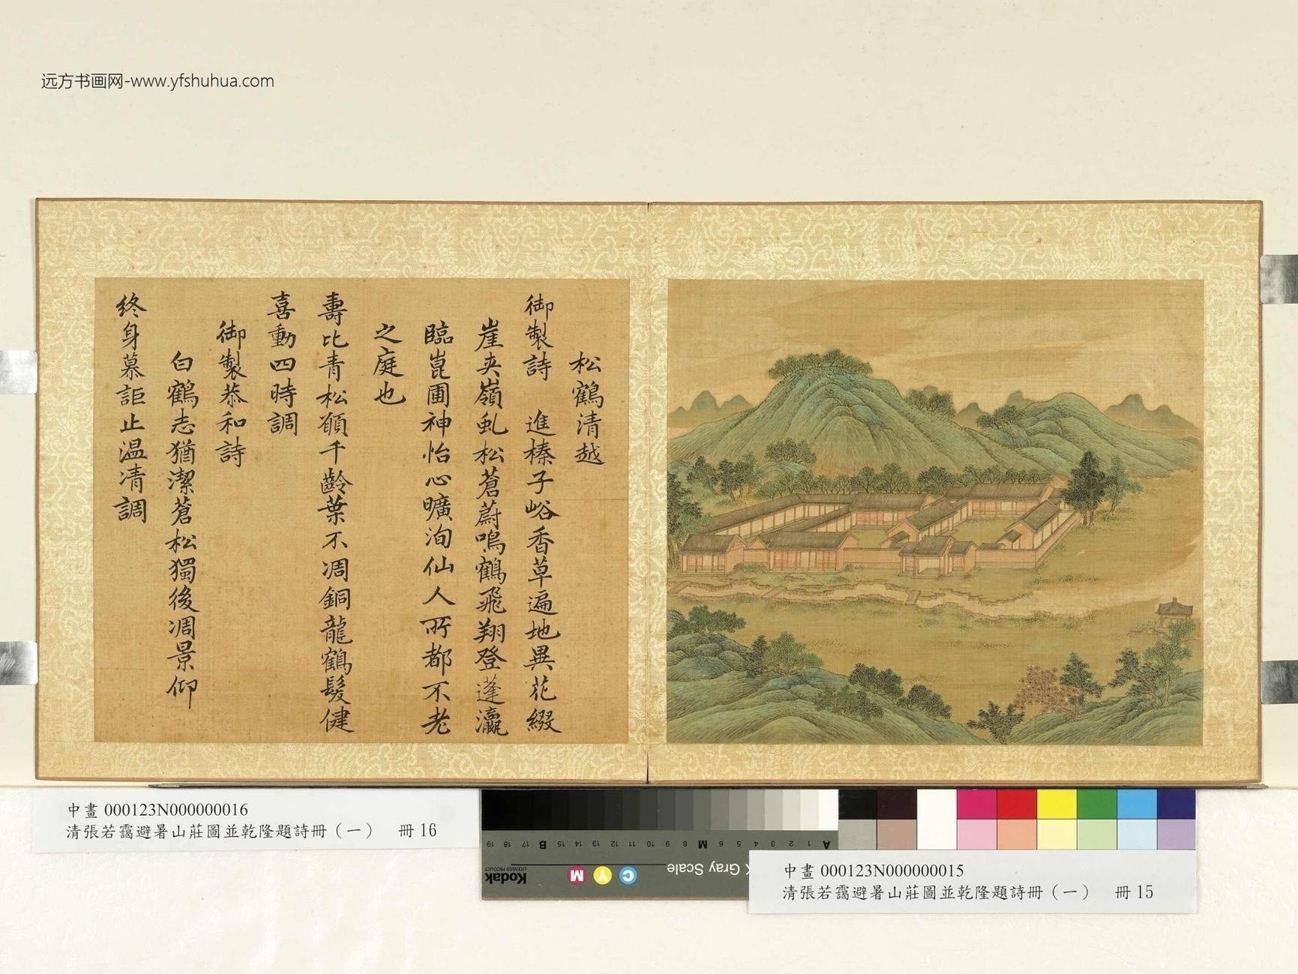 远方书画网-www.yfshuhua.com
松鶴清越
御製詩　進榛子峪香草遍地異花綴
崖夾嶺虬松蒼蔚鳴鶴飛翔登蓬瀛
臨崑圃神怡心曠洵仙人所都不老
之庭也
壽比青松願千齡葉不凋銅龍鶴髮健
喜動四時調
御製恭和詩
白鶴志猶潔蒼松獨後凋景仰
終身慕詎止温凊調
中畫 000123N000000016
清張若靄避暑山莊圖並乾隆題詩冊（一）　冊 16
A 1 2 3 4 5 6 M 8 9 10 11 12 13 14 15 B 17 18 19
Gray Scale
C Y M
Kodak
LICENSED PRODUCT
中畫 000123N000000015
清張若靄避暑山莊圖並乾隆題詩冊（一）　冊 15